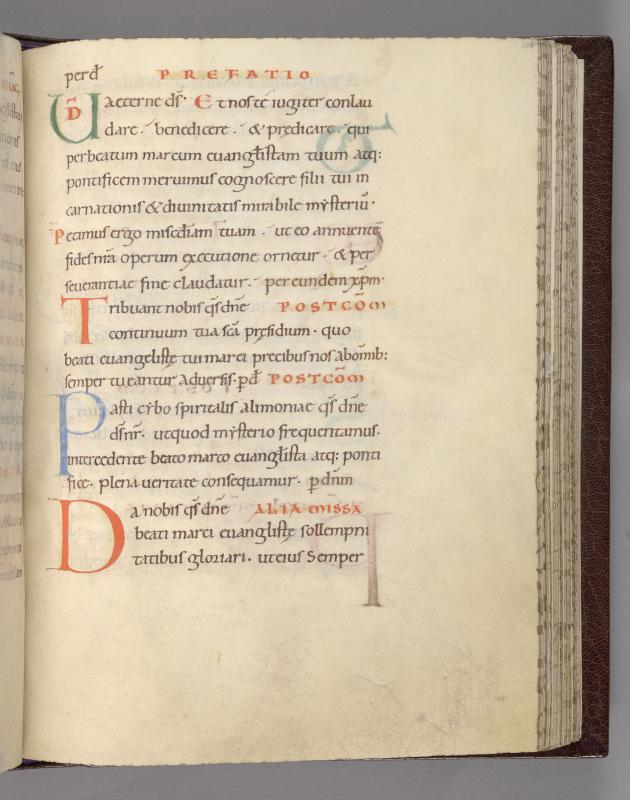 perd̄ PREFATIO
UD̄ aeterne dſ̄. Et nos te iugiter conlau
dare. benedicere. & prędicare. qui
per beatum marcum euanḡłistam tuum atq:
pontificem meruimus cognoscere filii tui in
carnationis & diuinitatis mirabile mẏsteriū.
Petimus ergo misc̄diam tuam. ut eo annuente
fides nr̄a operum executione ornetur. & per
seuerantiae fine claudatur. per eundem xp̄m.
Tribuant nobis qs̄ dn̄e POSTCŌM
continuum tua sc̄a pręsidium. quo
beati euangelistę tui marci precibus nos ab om̄ib:
semper tueantur aduersis. p̄d̄ POSTCŌM
Pasti cybo spiritalis alimoniae qs̄ dn̄e
ds̄ nr̄. ut quod mẏsterio frequentamus.
intercedente beato marco euanḡlista atq: ponti
fice. plena ueritate consequamur. p̄ dn̄m
Da nobis qs̄ dn̄e ALIA MISSA
beati marci euanglistę sollempni
tatibus gloriari. ut eius Semper